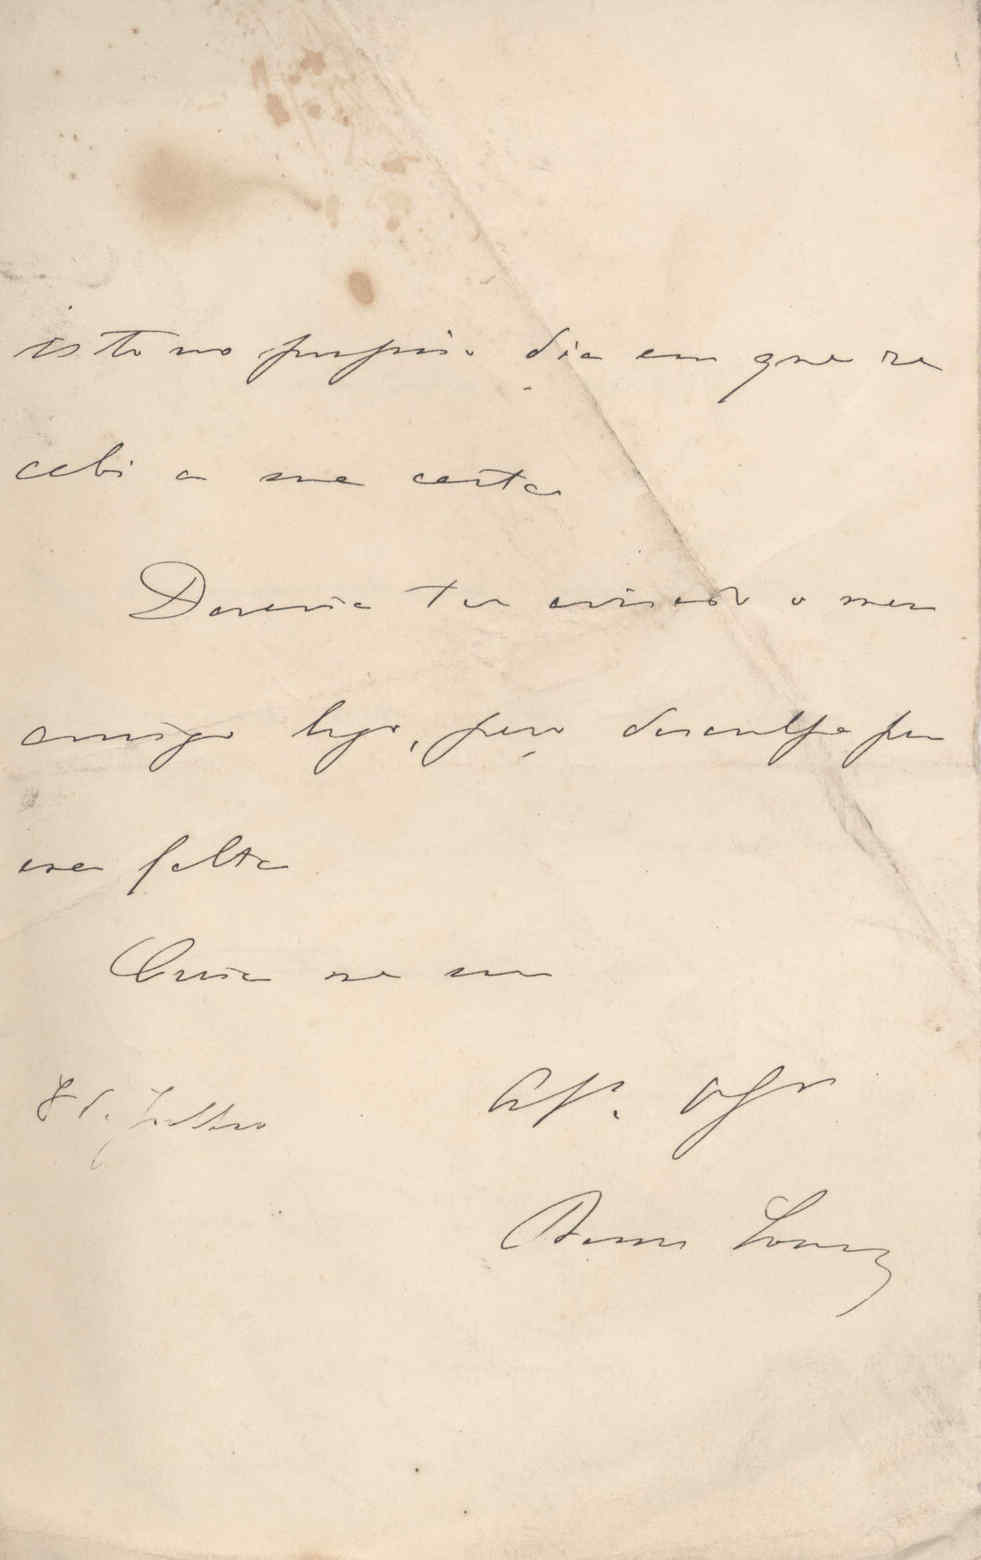 isto no proprio dia em que re
cebi a sua carta
Deveria ter avisado o meu
amigo logo, pero desculpe por
essa falta
Creia me seu
8 de Julho